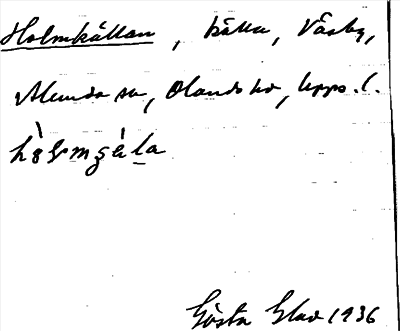 Holmkällan, källa, Våsby,
Alunda sn, Olands hd, Upps. l.
Gösta Glad 1936